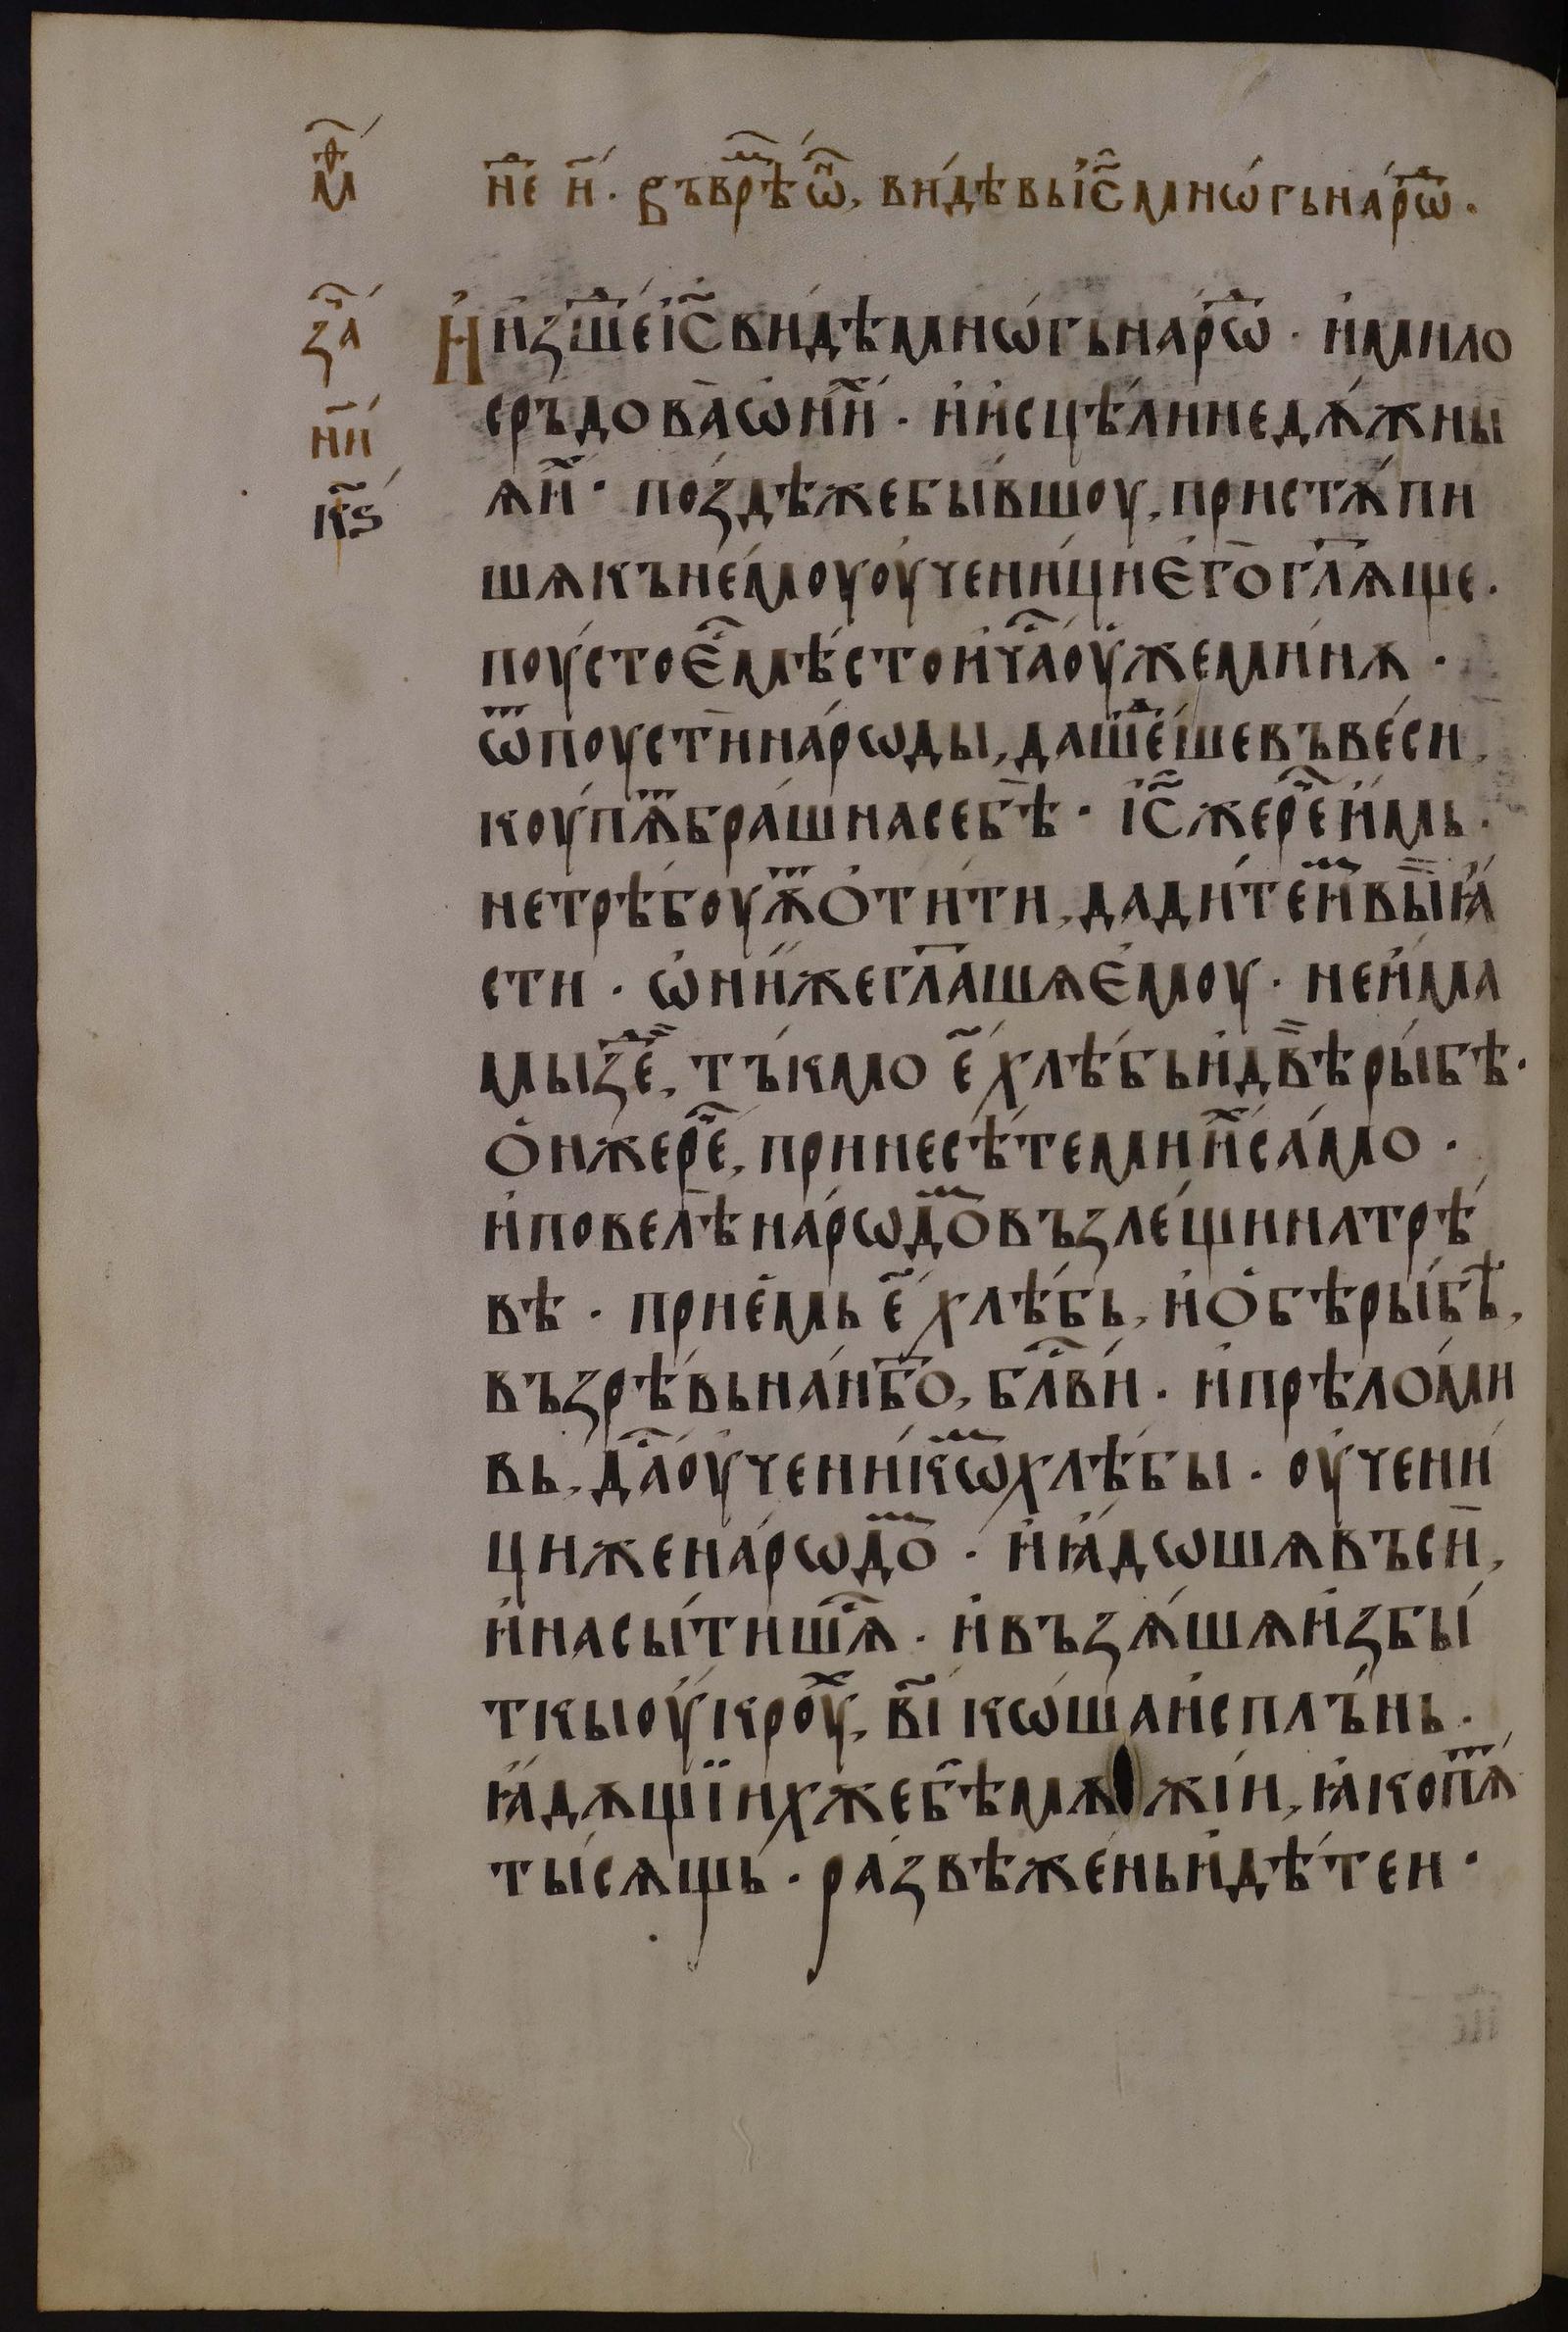 мѳ҃
не҃ н҃. въврѣⷨѡ҆ⷩ, ви́дѣвьіс҃мнѡ́гьна́рѡⷣ.
за҃
нн҃
кѕ҃
Ии҆зше́ⷣіс҃ви́дѣмнѡ́гьна́рѡⷣ· и҆мило
сръдова̀ѡ҆ни́ⷯ· и҆и҆сцѣ́линедѫ́жны
ѧи́ⷯ· по́здѣжебы́вшоу, пристѫ́пи
шѧкъне́моуоу҆чени́циє҆го̀гл҃ѧще.
поу́стоє҆ⷭ҇мѣ́стои҆ча́ⷭоу҆жемѝнѫ·
ѿпоустѝна́рѡды, даше́ⷣшевъве́си,
коу́пѧⷮбра́шнасебѣ̀· іс҃жереⷱ҇и҆́мь.
нетрѣ́боуѫⷮѻ҆тити́, дади́теи҆ⷨвы̀ꙗ҆́
сти· ѡ҆ни́жегл҃ашѧє҆моу̀· неи҆́ма
мызⷣе́, тъ́кмо е҃ хлѣ́бьи҆двѣ̀ры́бѣ·
ѻ҆нжереⷱ҇, принесѣ́темии҆ⷯса́мо·
и҆повелѣ̀на́рѡдѻⷨвъзле́щинатрѣ́
вѣ· прие҆́мь е҃ хлѣ́бь, и҆ѻ҆́бѣры́бѣ̀,
възрѣ́вьна́нб҃о, бл҃вѝ· и҆прѣло́ми
вь, да́ⷭоу҆ченикѡⷨхлѣ́бы· оу҆чени
цижена́рѡдѻⷨ· и҆ꙗ҆́дѡшѧвъсѝ,
и҆насы́тишѧⷭ· и҆възѧ́шѧи҆збы́
ткыоу҆кроу́ⷯ, в҃і кѡ́шаи҆сплъ́нь.
ꙗ҆дѧщі́ихжебѣ̀мѫжіи, ꙗ҆копѧ́ⷮ
ты́сѧщь· ра́звѣже́ньи҆дѣ́теи·